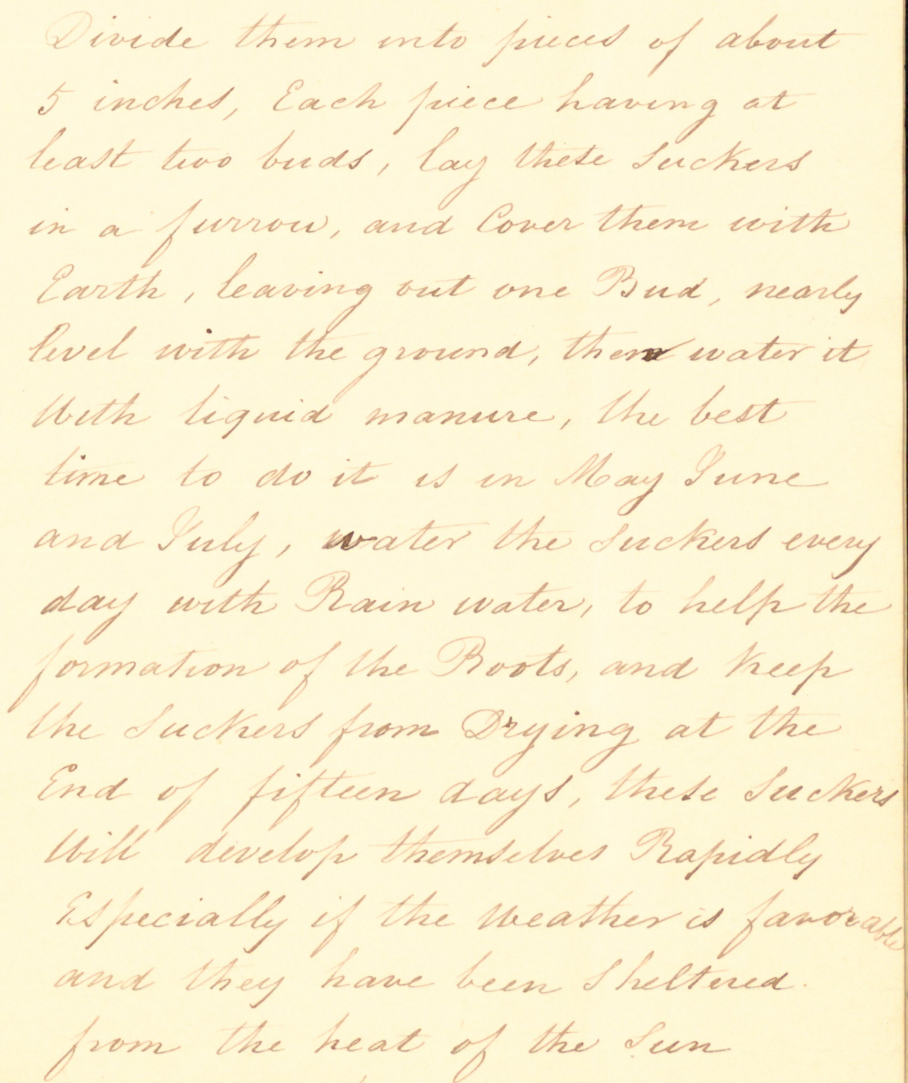 Divide them into pieces of about
5 inches, Each piece having at
least two buds, lay these Suckers
in a furrow, and Cover them with
Earth, leaving out one Bud, nearly
level with the ground, then water it
With liquid manure, the best
time to do it is in May June
and July, water the Suckers every
day with Rain water, to help the
formation of the Roots, and Keep
the Suckers from Drying at the
End of fifteen days, these Suckers
Will develop themselves Rapidly
Especially if the Weather is favorable
and they have been Sheltered.
from the heat of the Sun